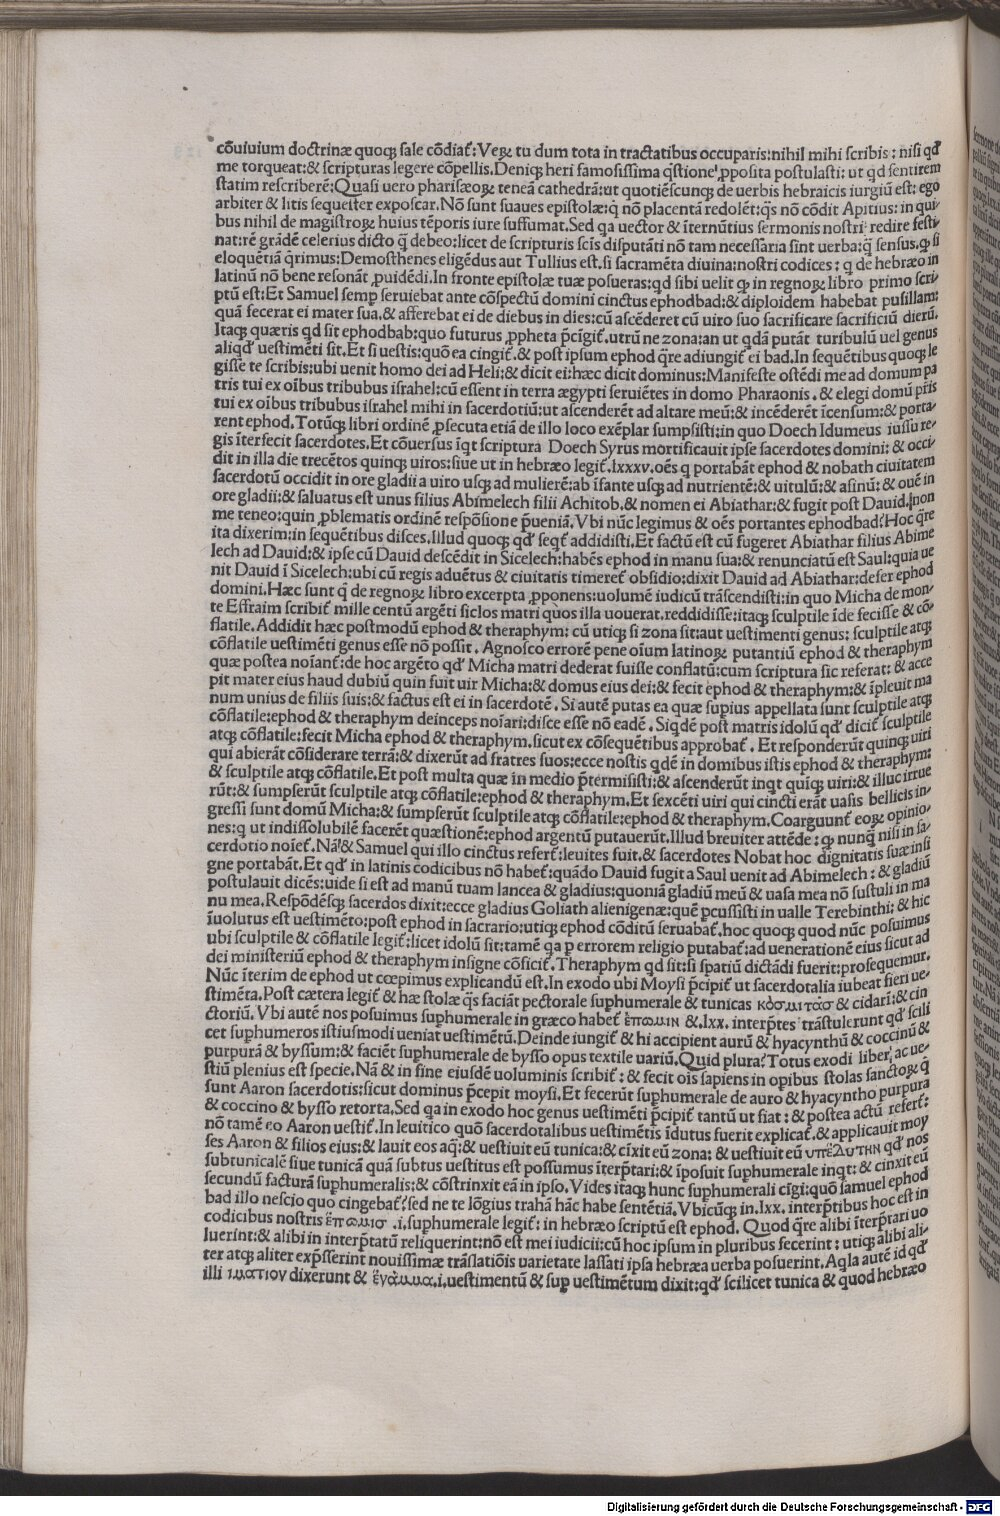 cōuiuium doctrinæ quoqꝫ sale cōdiat᷑: Veꝝ tu dum tota in tractatibus occuparis: nihil mihi scribis: nisi qđ
me torqueat: & scripturas legere cōpellis. Deniqꝫ heri famosissima q̄stione ꝓposita postulasti: ut qd sentirem
statim rescriberē: Quasi uero pharisæoꝝ teneā cathedrā: ut quotiēscunqꝫ de uerbis hebraicis iurgiū est: ego
arbiter & litis sequester exposcar. Nō sunt suaues epistolæ: q̄ nō placentā redolēt: q̄s nō cōdit Apitius: in qui-
bus nihil de magistroꝝ huius tēporis iure suffumat. Sed qa uector & īternūtius sermonis nostri redire festi-
nat: rē grādē celerius dicto q̄ debeo: licet de scripturis scīs disputāti nō tam necessaria sint uerba: q̄ sensus. ꝙ si
eloquētiā q̄rimus: Demosthenes eligēdus aut Tullius est. si sacramēta diuina: nostri codices: q de hebræo in
latinū nō bene resonāt ꝓuidēdi. In fronte epistolæ tuæ posueras: qd sibi uelit ꝙ in regnoꝝ libro primo scri-
ptū est: Et Samuel semꝑ seruiebat ante cōspectū domini cinctus ephodbad: & diploidem habebat pusillam:
quā fecerat ei mater sua. & afferebat ei de diebus in dies: cū ascēderet cū uiro suo sacrificare sacrificiū dierū.
Itaqꝫ quæris qd sit ephodbab: quo futurus ꝓpheta p̄cīgit᷑. utrū ne zona: an ut qdā putāt turibulū uel genus
aliqđ uestimēti sit. Et si uestis: quō ea cingit᷑. & post ipsum ephod q̄re adiungit᷑ ei bad. In sequētibus quoqꝫ le
gisse te scribis: ubi uenit homo dei ad Heli: & dicit ei: hæc dicit dominus: Manifeste ostēdi me ad domum pa
tris tui ex oībus tribubus israhel: cū essent in terra ægypti seruiētes in domo Pharaonis. & elegi domū p̄ris
tui ex oībus tribubus israhel mihi in sacerdotiū: ut ascenderēt ad altare meū: & incēderēt īcensum: & porta-
rent ephod. Totūqꝫ libri ordinē ꝓsecuta etiā de illo loco exēplar sumpsisti: in quo Doech Idumeus iussu re-
gis īterfecit sacerdotes. Et cōuersus īqt scriptura Doech Syrus mortificauit ipse sacerdotes domini: & occi-
dit in illa die trecētos quinqꝫ uiros: siue ut in hebræo legit᷑. lxxxv. oēs q portabāt ephod & nobath ciuitatem
sacerdotū occidit in ore gladii a uiro usqꝫ ad mulierē: ab īfante usqꝫ ad nutrientē: & uitulū: & asinū: & ouē in
ore gladii: & saluatus est unus filius Abimelech filii Achitob. & nomen ei Abiathar: & fugit post Dauid. Jnon
me teneo: quin ꝓblematis ordinē respōsione p̄ueniā. Vbi nūc legimus & oēs portantes ephodbad? Hoc q̄re
ita dixerim: in sequētibus disces. Illud quoqꝫ qđ seqt᷑ addidisti. Et factū est cū fugeret Abiathar filius Abime
lech ad Dauid: & ipse cū Dauid descēdit in Sicelech: habēs ephod in manu sua: & renunciatū est Saul: quia ue
nit Dauid ī Sicelech: ubi cū regis aduētus & ciuitatis timeret᷑ obsidio: dixit Dauid ad Abiathar: defer ephod
domini. Hæc sunt q̄ de regnoꝝ libro excerpta ꝓponens: uolumē iudicū trāscendisti: in quo Micha de mon-
te Effraim scribit᷑ mille centū argēti siclos matri quos illa uouerat. reddidisse: itaqꝫ sculptile īde fecisse & cō-
flatile. Addidit hæc postmodū ephod & theraphym: cū utiqꝫ si zona sit: aut uestimenti genus: sculptile atqꝫ
cōflatile uestimēti genus esse nō possit. Agnosco errorē pene oīum latinoꝝ putantiū ephod & theraphym
quæ postea noīant᷑: de hoc argēto qđ Micha matri dederat fuisse conflatū: cum scriptura sic referat: & acce
pit mater eius haud dubiū quin fuit uir Micha: & domus eius dei: & fecit ephod & theraphym: & īpleuit ma
num unius de filiis suis: & factus est ei in sacerdotē. Si autē putas ea quæ supius appellata sunt sculptile atqꝫ
cōflatile: ephod & theraphym deinceps noīari: disce esse nō eadē. Siqdē post matris idolū qđ dicit᷑ sculptile
atqꝫ cōflatile: fecit Micha ephod & theraphym. sicut ex cōsequētibus approbat᷑. Et responderūt quinqꝫ uiri
qui abierāt cōsiderare terrā: & dixerūt ad fratres suos: ecce nostis qdē in domibus istis ephod & theraphym:
& sculptile atqꝫ cōflatile. Et post multa quæ in medio p̄termisisti: & ascenderūt inqt quīqꝫ uiri: & illuc irrue
rūt: & sumpserūt sculptile atqꝫ cōflatile: ephod & theraphym. Et sexcēti uiri qui cincti erāt uasis bellicis in-
gressi sunt domū Micha: & sumpserūt sculptile atqꝫ cōflatile: ephod & theraphym. Coarguunt᷑ eoꝝ opinio-
nes: q ut indissolubilē facerēt quæstionē: ephod argentū putauerūt. Illud breuiter attēde: ꝙ nunq̄ nisi in sa-
cerdotio noīet᷑. Nā & Samuel qui illo cinctus refert᷑: leuites fuit. & sacerdotes Nobat hoc dignitatis suæ insi
gne portabāt. Et qđ in latinis codicibus nō habet᷑: quādo Dauid fugit a Saul uenit ad Abimelech: & gladiū
postulauit dicēs: uide si est ad manū tuam lancea & gladius: quoniā gladiū meū & uasa mea nō sustuli in ma
nu mea. Respōdēsqꝫ sacerdos dixit: ecce gladius Goliath alienigenæ: quē ꝑcussisti in ualle Terebinthi: & hic
īuolutus est uestimēto: post ephod in sacrario: utiqꝫ ephod cōditū seruabat᷑. hoc quoqꝫ quod nūc posuimus
ubi sculptile & cōflatile legit᷑: licet idolū sit: tamē qa ꝑ errorem religio putabat᷑: ad uenerationē eius sicut ad
dei ministeriū ephod & theraphym insigne cōficit᷑. Theraphym qd sit: si spatiū dictādi fuerit: prosequemur.
Nūc īterim de ephod ut cœpimus explicandū est. In exodo ubi Moysi p̄cipit᷑ ut sacerdotalia iubeat fieri ue-
stimēta. Post cætera legit᷑ & hæ stolæ q̄s faciāt pectorale suphumerale & tunicas κόσμιτάσ & cidarī: & cin
ctoriū. Vbi autē nos posuimus suphumerale in græco habet᷑ ἐπωμιν &. lxx. interp̄tes trāstulerunt qđ scili
cet suphumeros istiusmodi ueniat uestimētū. Deinde iungit᷑ & hi accipient aurū & hyacynthū & coccinū &
purpurā & byssum: & faciēt suphumerale de bysso opus textile uariū. Quid plura? Totus exodi liber ac ue-
stiū plenius est specie. Nā & in fine eiusdē uoluminis scribit᷑: & fecit oīs sapiens in opibus stolas sanctoꝝ: q̄
sunt Aaron sacerdotis: sicut dominus p̄cepit moysi. Et fecerūt suphumerale de auro & hyacyntho purpura
& coccino & bysso retorta. Sed qa in exodo hoc genus uestimēti p̄cipit᷑ tantū ut fiat: & postea actū refert᷑:
nō tamē eo Aaron uestit᷑. In leuitico quō sacerdotalibus uestimētis īdutus fuerit explicat᷑. & applicauit moy
ses Aaron & filios eius: & lauit eos aq̄: & uestiuit eū tunica: & cīxit eū zona: & uestiuit eū υπἐδυτην qđ nos
subtunicalē siue tunicā quā subtus uestitus est possumus īterp̄tari: & īposuit suphumerale inqt: & cinxit eū
secundū facturā suphumeralis: & cōstrinxit eā in ipso. Vides itaqꝫ hunc suphumerali cīgi: quō samuel ephod
bad illo nescio quo cingebat᷑? sed ne te lōgius trahā hāc habe sentētiā. Vbicūqꝫ in. lxx. interp̄tibus hoc est in
codicibus nostris ἐπωμισ .i. suphumerale legit᷑: in hebræo scriptū est ephod. Quod q̄re alibi īterp̄tari uo
luerint: & alibi in interp̄tatū reliquerint: nō est mei iudicii: cū hoc ipsum in pluribus fecerint: utiqꝫ alibi ali-
ter atqꝫ aliter exp̄sserint nouissimæ trāslatiōis uarietate lassati ipsa hebræa uerba posuerint. Aqla autē id qđ
illi ιματιον dixerunt & ἔνδυμα .i. uestimentū & suꝑ uestimētum dixit: qđ scilicet tunica & quod hebræo
Digitalisierung gefördert durch die Deutsche Forschungsgemeinschaft - DFG